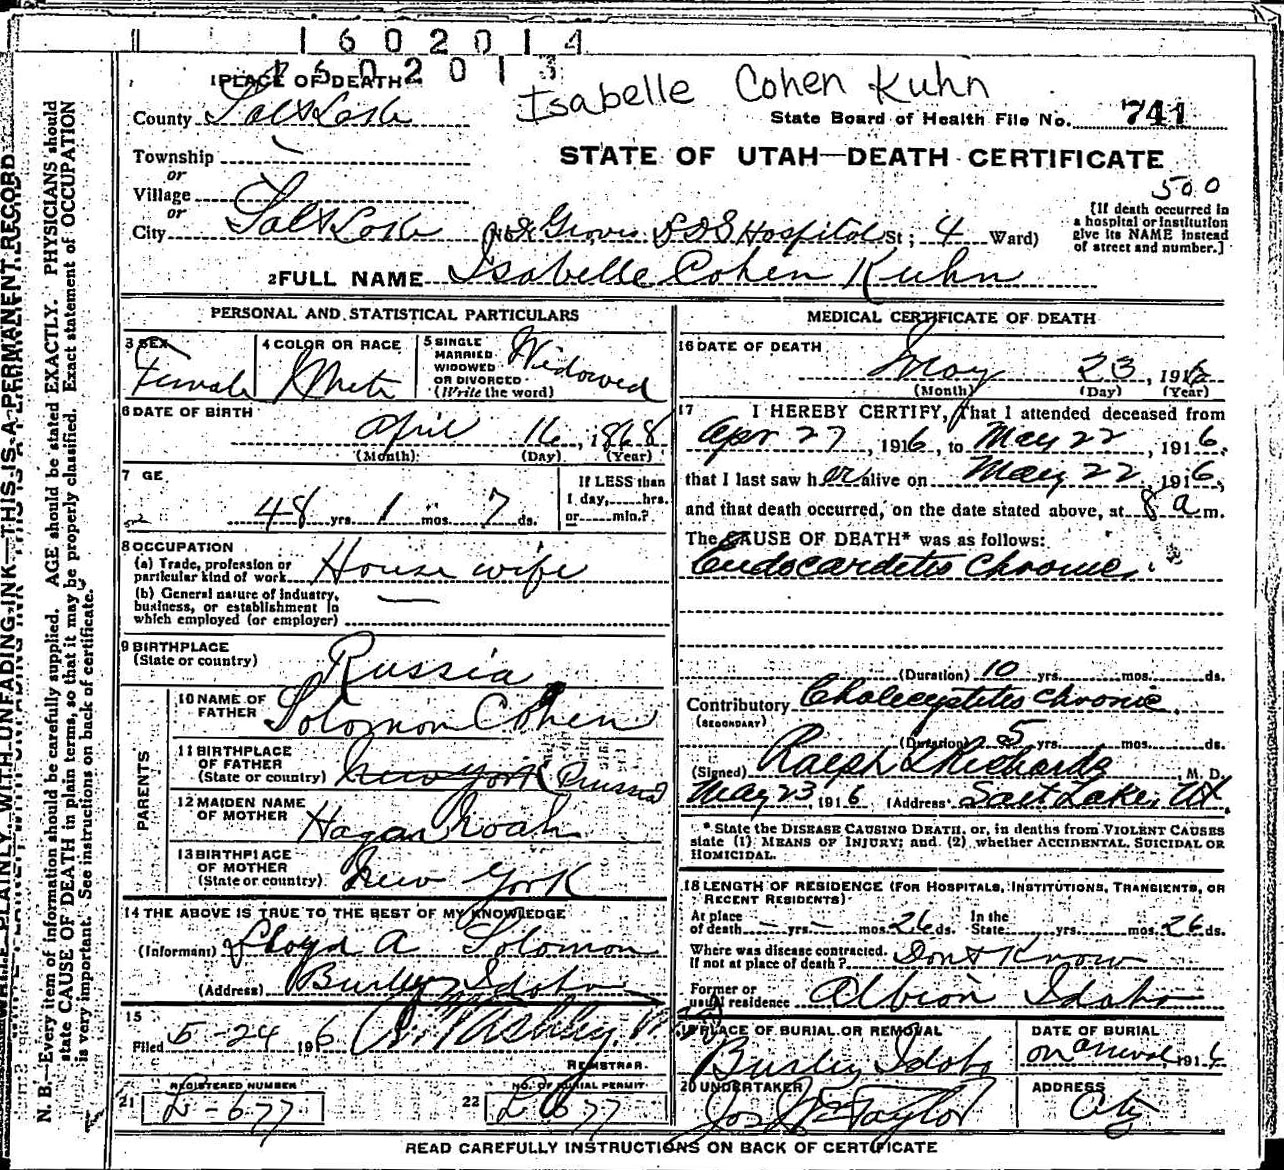 1602014
1602013
1 PLACE OF DEATH
Isabelle Cohen Kuhn
County Salt Lake
State Board of Health File No. 741
Township
or
STATE OF UTAH—DEATH CERTIFICATE
Village
or
500
City Salt Lake Groves LDS Hospital St; 4 Ward)
[If death occurred in
a hospital or institution
give its NAME instead
of street and number.]
2 FULL NAME Isabelle Cohen Kuhn
PERSONAL AND STATISTICAL PARTICULARS
3 SEX Female
4 COLOR OR RACE White
5 SINGLE
MARRIED
WIDOWED
OR DIVORCED
(Write the word) Widowed
6 DATE OF BIRTH
April 16, 1868
(Month) (Day) (Year)
7 GE
48 yrs. 1 mos. 7 ds.
If LESS than
1 day, hrs.
or min.?
8 OCCUPATION
(a) Trade, profession or
particular kind of work House wife
(b) General nature of industry,
business, or establishment in
which employed (or employer)
9 BIRTHPLACE
(State or country) Russia
PARENTS
10 NAME OF
FATHER Solomon Cohen
11 BIRTHPLACE
OF FATHER
(State or country) New York Russia
12 MAIDEN NAME
OF MOTHER Hagar Noah
13 BIRTHPLACE
OF MOTHER
(State or country) New York
14 THE ABOVE IS TRUE TO THE BEST OF MY KNOWLEDGE
(Informant) Lloyd A Solomon
(Address) Burley Idaho
15
Filed 5-24 1916
REGISTRAR.
REGISTERED NUMBER
21 L-677
NO. OF BURIAL PERMIT
22 L 677
MEDICAL CERTIFICATE OF DEATH
16 DATE OF DEATH
May 23, 1916
(Month) (Day) (Year)
17 I HEREBY CERTIFY, That I attended deceased from
Apr 27, 1916, to May 22, 1916.
that I last saw her alive on May 22, 1916,
and that death occurred, on the date stated above, at 8 a m.
The CAUSE OF DEATH* was as follows:
Endocarditis Chronic.
(Duration) 10 yrs. mos. ds.
Contributory Cholecystitis Chronic.
(SECONDARY)
(Duration) 5 yrs. mos. ds.
(Signed) Ralph Richards, M. D.
May 23 1916 (Address) Salt Lake, Ut.
* State the DISEASE CAUSING DEATH, or, in deaths from VIOLENT CAUSES
state (1) MEANS OF INJURY; and (2) whether ACCIDENTAL, SUICIDAL OR
HOMICIDAL.
18 LENGTH OF RESIDENCE (FOR HOSPITALS, INSTITUTIONS, TRANSIENTS, OR
RECENT RESIDENTS)
At place
of death — yrs. — mos. 26 ds.
In the
State yrs. mos. 26 ds.
Where was disease contracted,
If not at place of death? Dont Know
Former or
usual residence Albion Idaho
19 PLACE OF BURIAL OR REMOVAL
Burley Idaho
DATE OF BURIAL
on arrival, 1916
20 UNDERTAKER
Jos Wm Taylor
ADDRESS
City
READ CAREFULLY INSTRUCTIONS ON BACK OF CERTIFICATE
WRITE PLAINLY WITH UNFADING INK—THIS IS A PERMANENT RECORD
N. B.—Every item of information should be carefully supplied. AGE should be stated EXACTLY. PHYSICIANS should
state CAUSE OF DEATH in plain terms, so that it may be properly classified. Exact statement of OCCUPATION
is very important. See instructions on back of certificate.